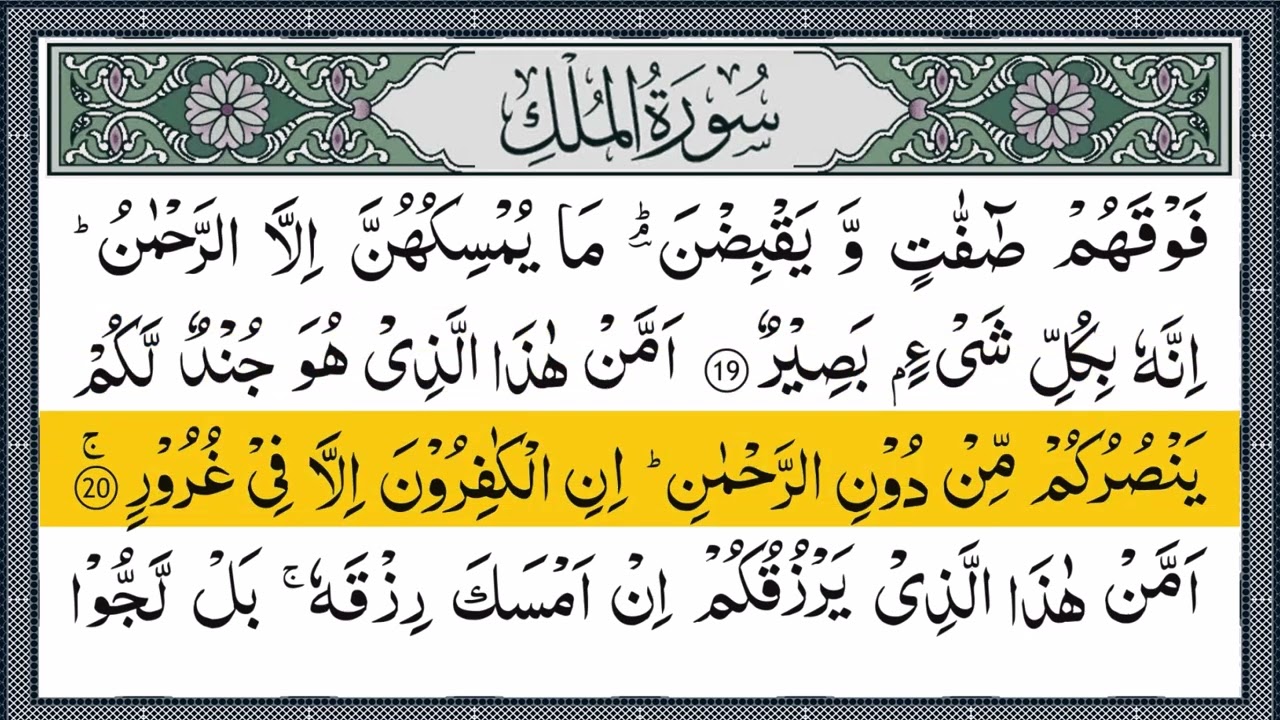 سُورَةُ الْمُلْكِ
فَوْقَهُمْ صٰٓفّٰتٍ وَّ يَقْبِضْنَ ؔۘؕ مَا يُمْسِكُهُنَّ اِلَّا الرَّحْمٰنُ ؕ
اِنَّهٗ بِكُلِّ شَیْءٍۭ بَصِيْرٌ ⑲ اَمَّنْ هٰذَا الَّذِیْ هُوَ جُنْدٌ لَّكُمْ
يَنْصُرُكُمْ مِّنْ دُوْنِ الرَّحْمٰنِ ؕ اِنِ الْكٰفِرُوْنَ اِلَّا فِیْ غُرُوْرٍ ۚ ⑳
اَمَّنْ هٰذَا الَّذِیْ يَرْزُقُكُمْ اِنْ اَمْسَكَ رِزْقَهٗ ۚ بَلْ لَّجُّوْا